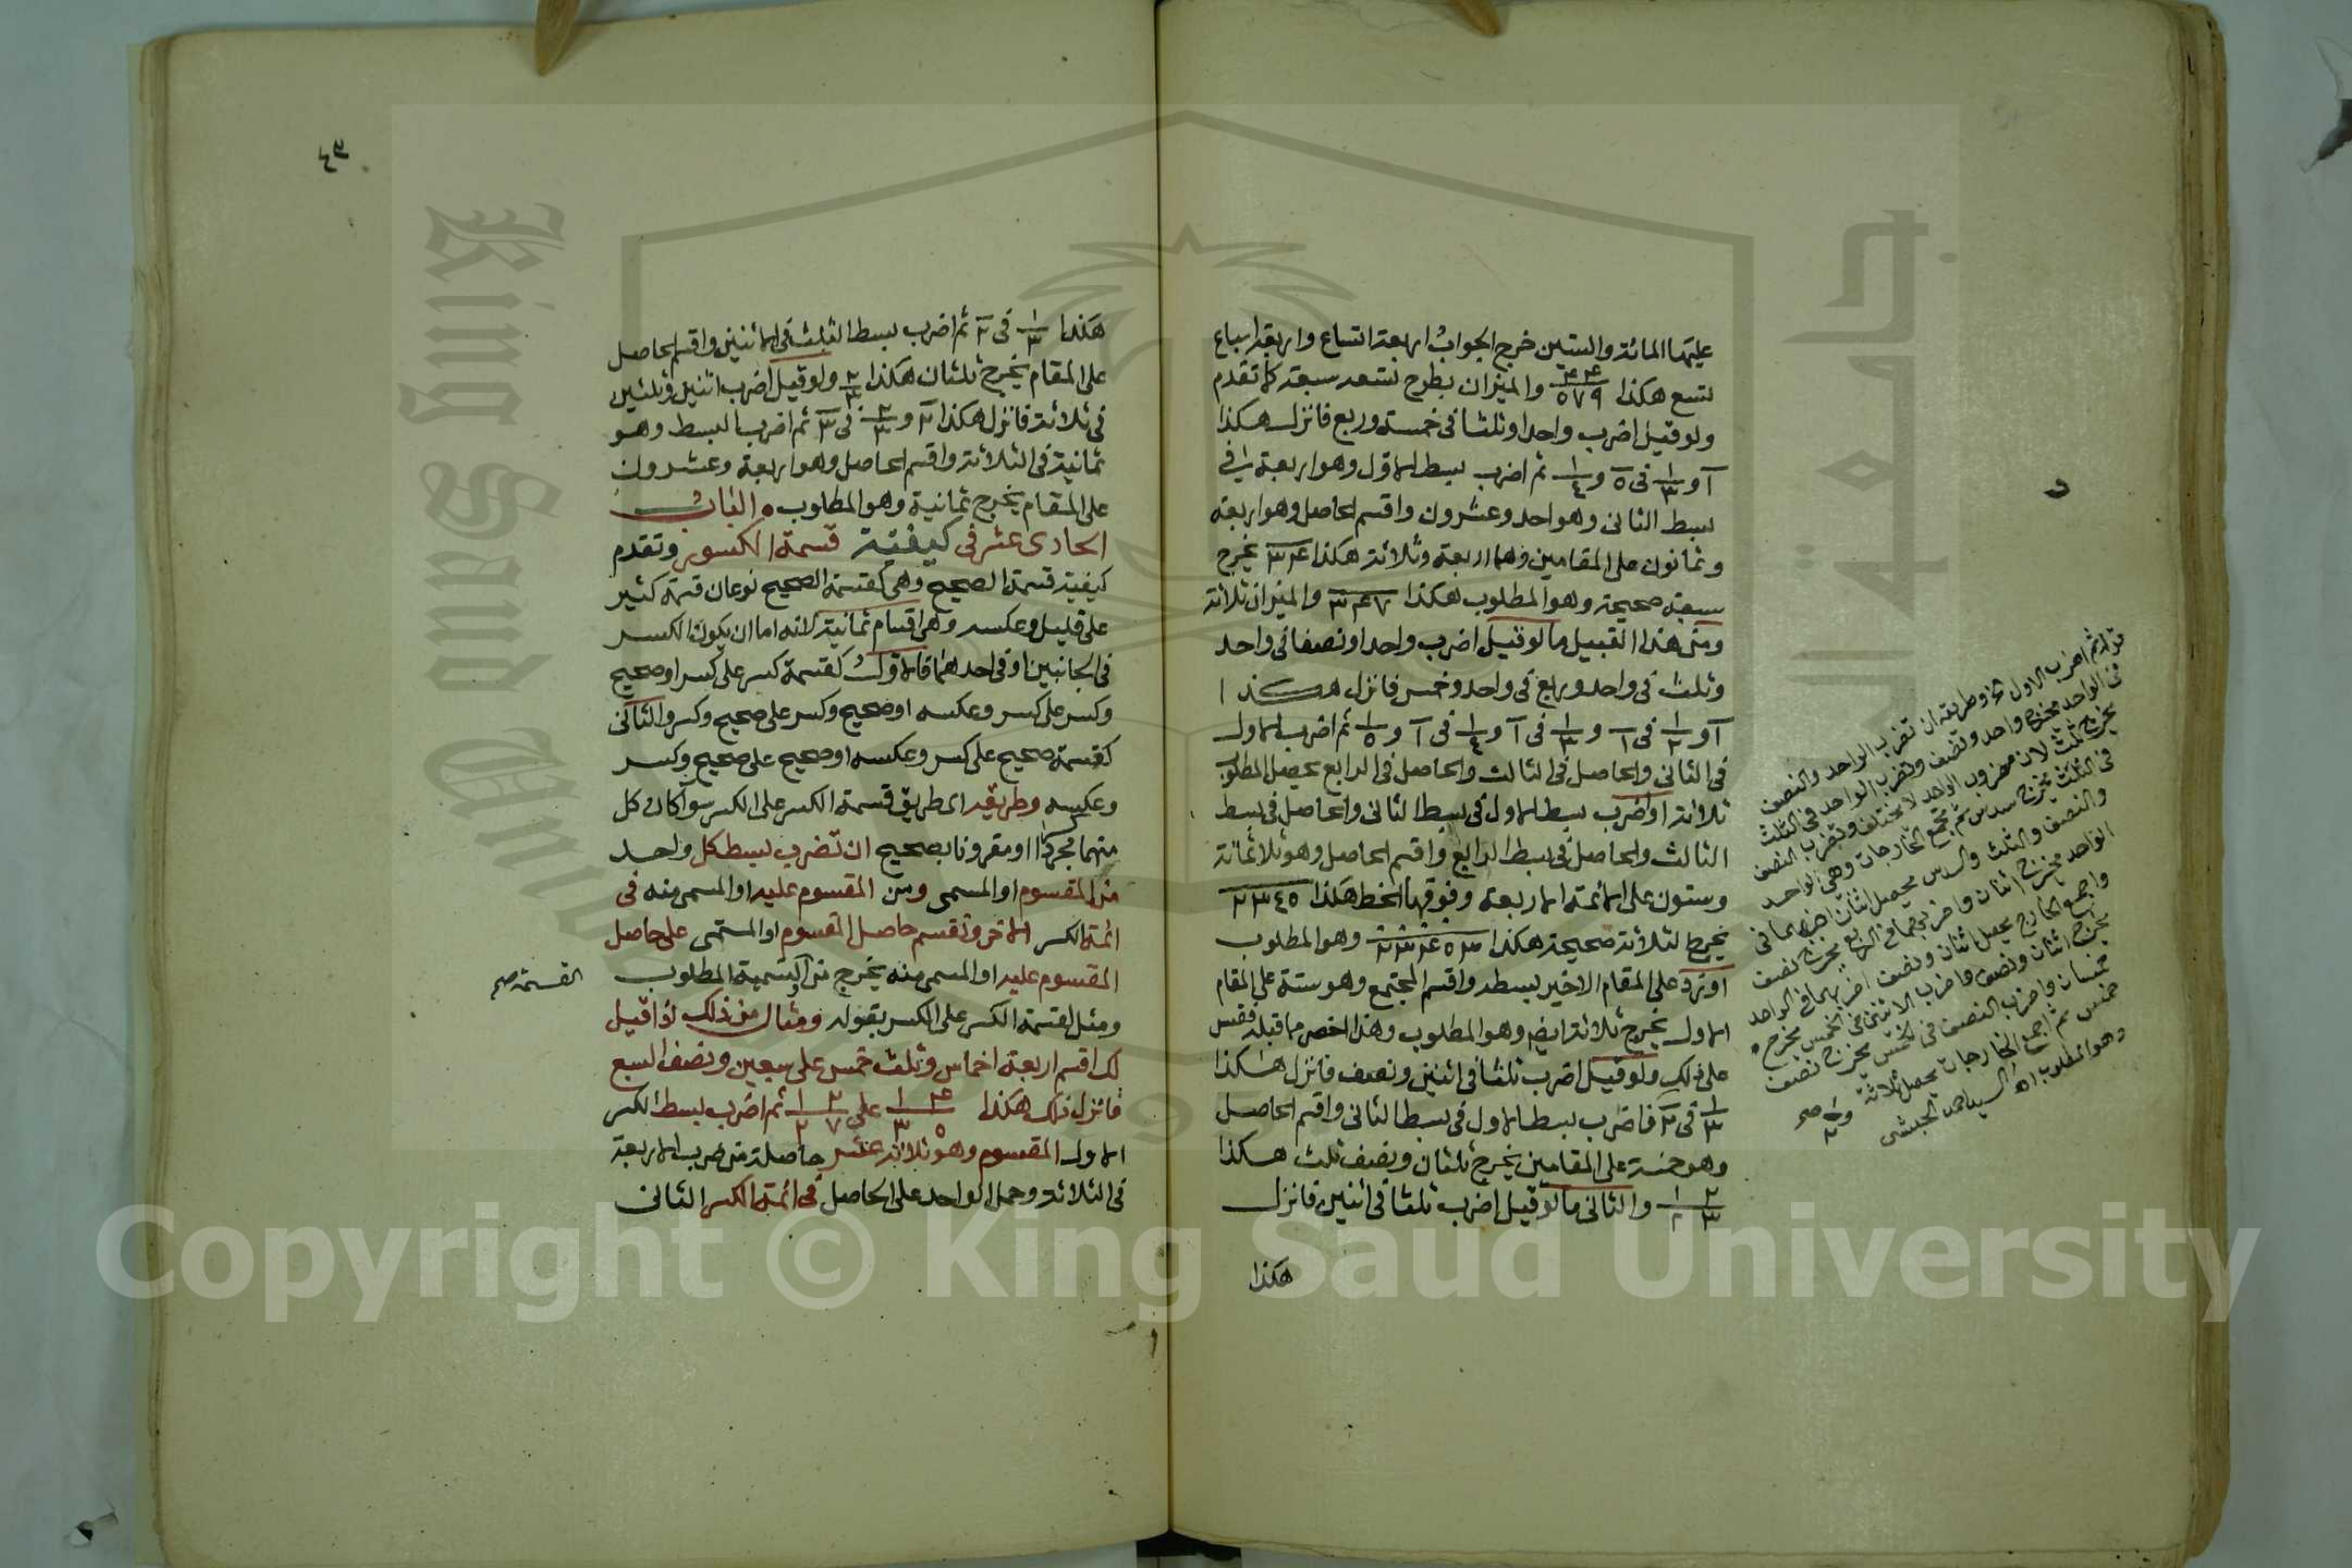 عليها المائة والستين خرج الجواب اربعة اتساع واربعة اسباع
تسع هكذا والميزان بطرح تسعه سبعة كما تقدم
ولو قيل اضرب واحدا وثلثا في خمسة وربع فانزل هكذا
١ و ١/٣ في ٥ و ١/٤ ثم اضرب بسط الاول وهو اربعة في
بسط الثاني وهو احد وعشرون واقسم الحاصل وهو اربعة
وثمانون على المقامين وهما اربعة وثلاثة هكذا ٣ ٤ ٣ يخرج
سبعة صحيحة وهو المطلوب هكذا والميزان ثلاثة
ومن هذا القبيل ما لو قيل اضرب واحدا ونصفا في واحد
وثلث في واحد وربع في واحد وخمس فانزل هكذا
١ و ١/٢ في ١ و ١/٣ في ١ و ١/٤ في ١ و ١/٥ ثم اضرب الاول
في الثاني والحاصل في الثالث والحاصل في الرابع يحصل المطلوب
ثلاثة او اضرب بسط الاول في بسط الثاني والحاصل في بسط
الثالث والحاصل في بسط الرابع واقسم الحاصل وهو ثلاثمائة
وستون على الائمة الاربعة وفوقها الخط هكذا ٢ ٣ ٤ ٥
يخرج الثلاثة صحيحة هكذا وهو المطلوب
او تزد على المقام الاخير بسطه واقسم المجتمع وهو ستة على المقام
الاول يخرج ثلاثة ايضا وهو المطلوب وهذا اخصر مما قبله فقس
على ذلك ولو قيل اضرب ثلثا في اثنين ونصف فانزل هكذا
١/٣ في ٢ فاضرب بسط الاول في بسط الثاني واقسم الحاصل
وهو خمسة على المقامين يخرج ثلثان ونصف ثلث هكذا
والثاني ما لو قيل اضرب ثلثا في اثنين فانزل
هكذا
قوله ثم اضرب الاول وطريقه ان تضرب الواحد والنصف
في الواحد يخرج واحد ونصف وتضرب الواحد في الثلث
يخرج ثلث لان مضروب الواحد لا يختلف وتضرب النصف
في الثلث يخرج سدس ثم تجمع الخارجات وهي الواحد
والنصف والثلث والسدس يحصل اثنان اضربهما في
الواحد يخرج اثنان واضربهما في الربع يخرج نصف
واجمع الخارج يحصل اثنان ونصف اضربهما في الواحد
يخرج اثنان ونصف واضرب الاثنين في الخمس يخرج
خمسان واضرب النصف في الخمس يخرج نصف
خمس ثم اجمع الخارجات يحصل ثلاثة
وهو المطلوب اه
هكذا ١/٣ في ٢ ثم اضرب بسط الثلث في الاثنين واقسم الحاصل
على المقام يخرج ثلثان هكذا ٢/٣ ولو قيل اضرب اثنين وثلثين
في ثلاثة فانزل هكذا ٢ و ٢/٣ في ٣ ثم اضرب البسط وهو
ثمانية في الثلاثة واقسم الحاصل وهو اربعة وعشرون
على المقام يخرج ثمانية وهو المطلوب الباب
الحادى عشر في كيفية قسمة الكسور وتقدم
كيفية قسمة الصحيح وهي كقسمة الصحيح نوعان قسمة كثير
على قليل وعكسه وهي اقسام ثمانية لانه اما ان يكون الكسر
في الجانبين او في احدهما فالاول كقسمة كسر على كسر او صحيح
وكسر على كسر وعكسه او صحيح وكسر على صحيح وكسر والثاني
كقسمة صحيح على كسر وعكسه او صحيح على صحيح وكسر
وعكسه وطريقه اى طريق قسمة الكسر على الكسر سوآ كان كل
منهما مجردا او مقرونا بصحيح ان تضرب بسط كل واحد
من المقسوم او المسمى ومن المقسوم عليه او المسمى منه في
ائمة الكسر الآخر وتقسم حاصل المقسوم او المسمى على حاصل
المقسوم عليه او المسمى منه يخرج من التسمية المطلوب
القسمة صح
ومثل لقسمة الكسر على الكسر بقوله ومثال من ذلك اذا قيل
لك اقسم اربعة اخماس وثلث خمس على سبعين ونصف السبع
فانزل ذلك هكذا على ثم اضرب بسط الكسر
الاول المقسوم وهو ثلاثة عشر حاصلة من ضرب الاربعة
في الثلاثة وحمل الواحد على الحاصل في ائمة الكسر الثاني
King Saud
جامعة
Copyright © King Saud University